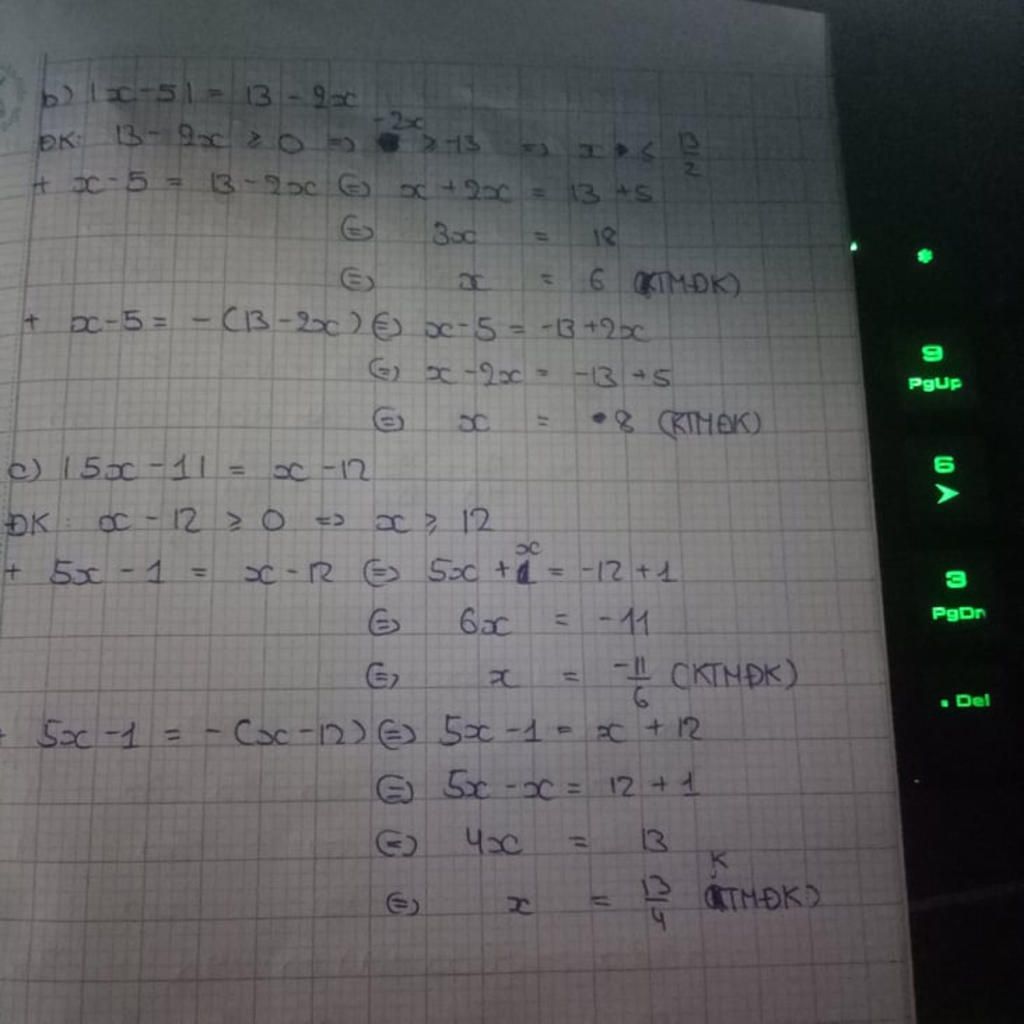 b) |x-5| = 13 - 2x
ĐK: 13 - 2x ≥ 0 => -2x ≥ -13 => x ≤ 13/2
+ x-5 = 13-2x <=> x+2x = 13+5
<=> 3x = 18
<=> x = 6 (TMĐK)
+ x-5 = -(13-2x) <=> x-5 = -13+2x
<=> x-2x = -13+5
<=> x = 8 (KTMĐK)
c) |5x-1| = x-12
ĐK: x-12 ≥ 0 => x ≥ 12
+ 5x-1 = x-12 <=> 5x+x = -12+1
<=> 6x = -11
<=> x = -11/6 (KTMĐK)
+ 5x-1 = -(x-12) <=> 5x-1 = x+12
<=> 5x-x = 12+1
<=> 4x = 13
<=> x = 13/4 (KTMĐK)
*
9
PgUp
6
3
PgDn
. Del